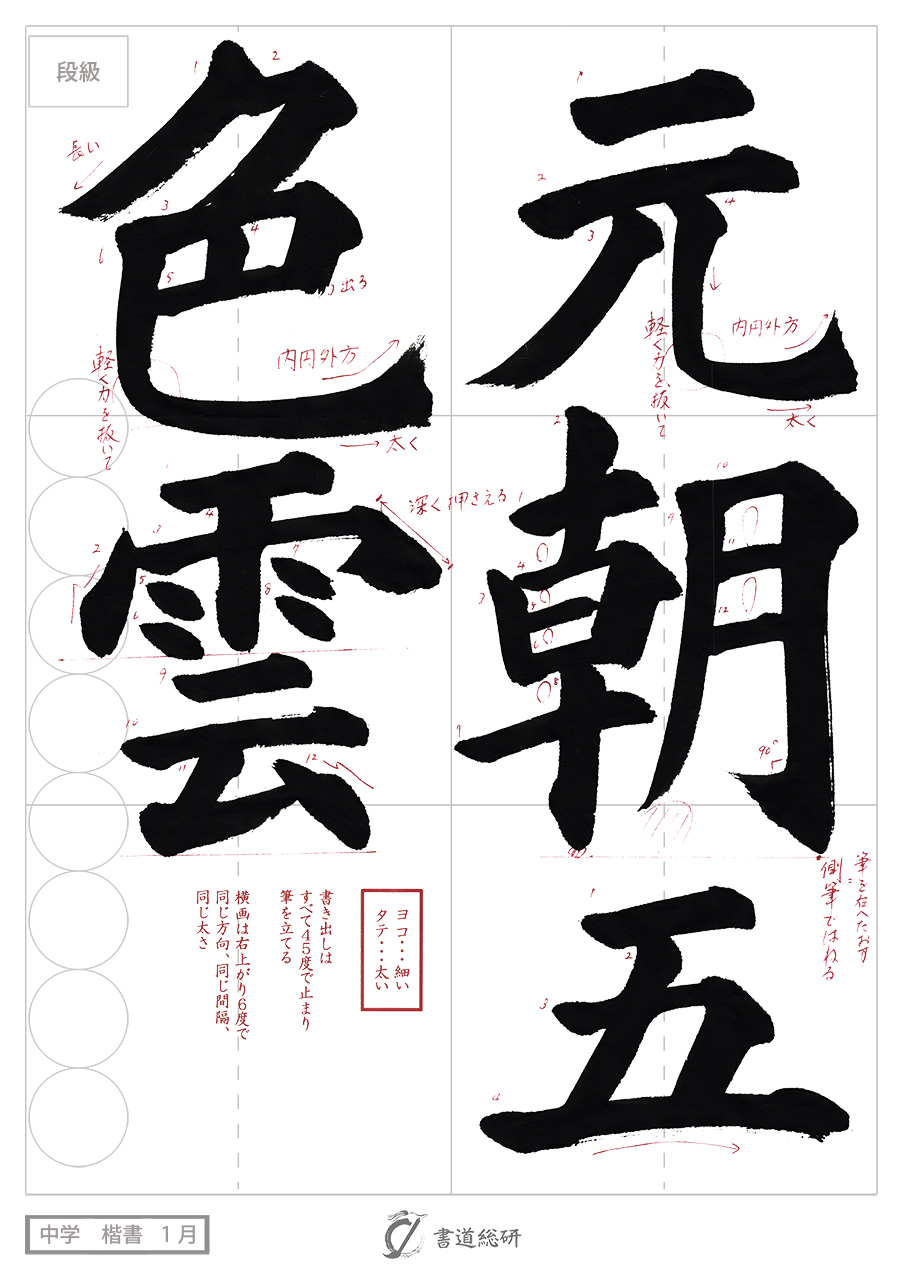 元朝五
色雲
段級
長い
出る
内円外方
軽く力を抜いて
太く
内円外方
軽く力を、抜いて
太く
深く押さえる
90°
筆を右へたおす
側筆ではねる
ヨコ・・・細い
タテ・・・太い
書き出しは
すべて45度で止まり
筆を立てる
横画は右上がり6度で
同じ方向、同じ間隔、
同じ太さ
中学 楷書 1月
書道総研